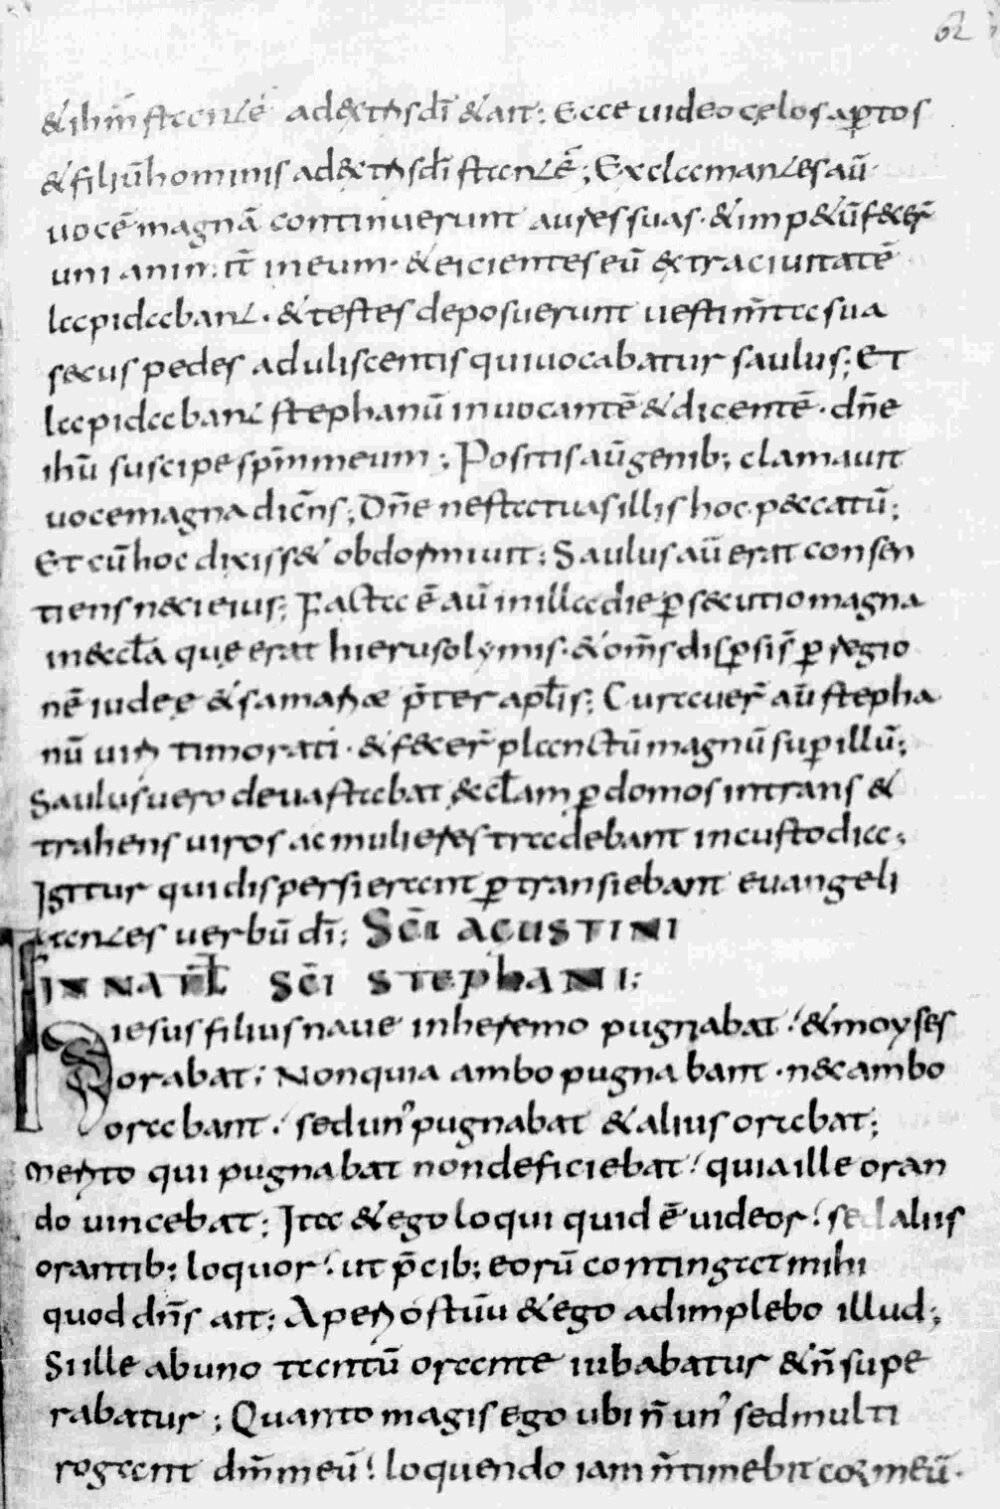 62
& ihm̅ stante̅ ad dextris di̅ & ait; Ecce uideo cęlos aptos
& filiu̅ hominis ad dextris di̅ stante̅; Exclamantes au̅
uoce̅ magna̅ continuerunt aures suas · & impetu̅ fecer̅
unianimit̅ in eum · & eicientes eu̅ extra ciuitate̅
lapidabant · & testes deposuerunt uestim̅ta sua
secus pedes aduliscentis qui uocabatur saulus; Et
lapidabant stephanu̅ inuocante̅ & dicente̅ · dn̅e
ihu̅ suscipe spm̅ meum; Positis au̅ genib; clamauit
uoce magna dice̅ns; Dn̅e ne statuas illis hoc peccatu̅;
Et cu̅ hoc dixiss& obdormiuit; Saulus au̅ erat consen
tiens neci eius; Facta e̅ au̅ in illa die p̱secutio magna
in eccl̅a quę erat hierusolymis · & om̅s disp̱si s̅ p̱ regio
ne̅ iudeę & samariæ p̅ter apl̅is; Curauer̅ au̅ stepha
nu̅ uiri timorati · & fecer̅ planctu̅ magnu̅ sup̱ illu̅;
Saulus uero deuastabat eccl̅am p̱ domos intrans &
trahens uiros ac mulieres tradebant in custodia;
Igitur qui dispersi erant p̱transiebant euangeli
zantes uerbu̅ di̅; SC̅I AGUSTINI
IN NATL̅ SC̅I STEPHANI;
Iesus filius naue in heremo pugnabat & moyses
orabat; Non quia ambo pugnabant · nec ambo
orabant · sed un' pugnabat & alius orabat;
Merito qui pugnabat non deficiebat quia ille oran
do uincebat; Ita & ego loqui quid e̅ uideor sed aliis
orantib; loquor ut p̅cib; eoru̅ contingat mihi
quod dn̅s ait; Aperi os tuu̅ & ego adimplebo illud;
Si ille ab uno tantu̅ orante iubabatur & n̅ supe
rabatur; Quanto magis ego ubi n̅ un' sed multi
rogant dm̅ meu̅ loquendo iam n̅ timebit cor meu̅ ·